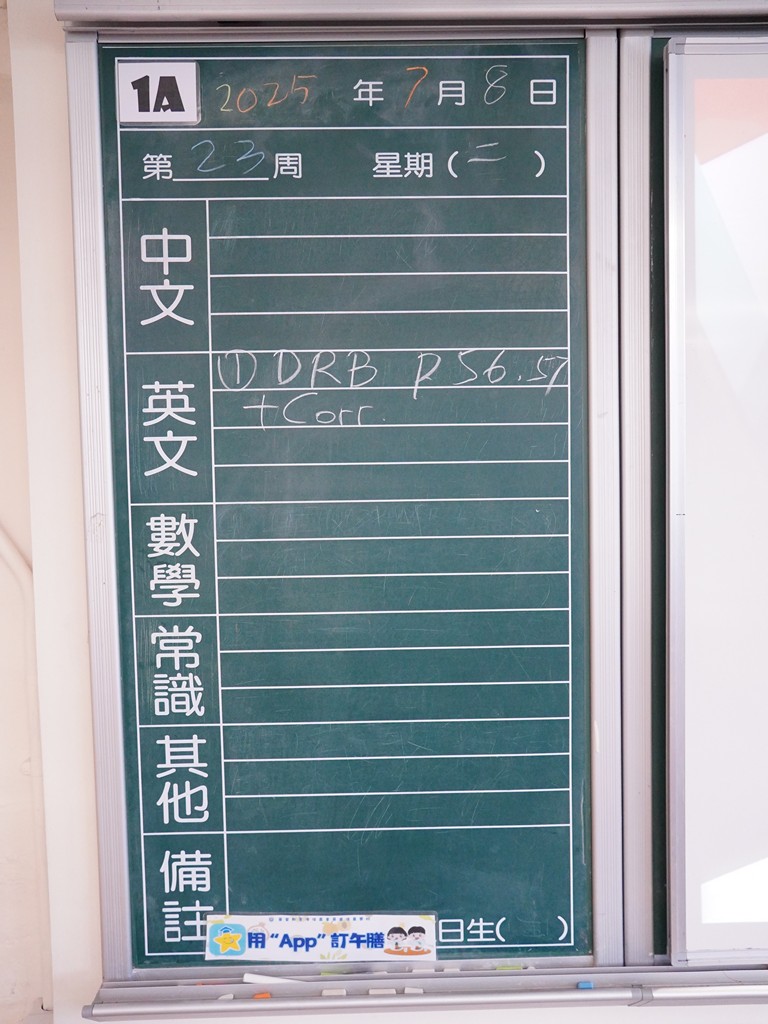 1A 2025 年 7 月 8 日
第 23 周 星期(二)
中文
英文 ① DRB P 56.57
+ Corr.
數學
常識
其他
備註
用“App”訂午膳 日生( )